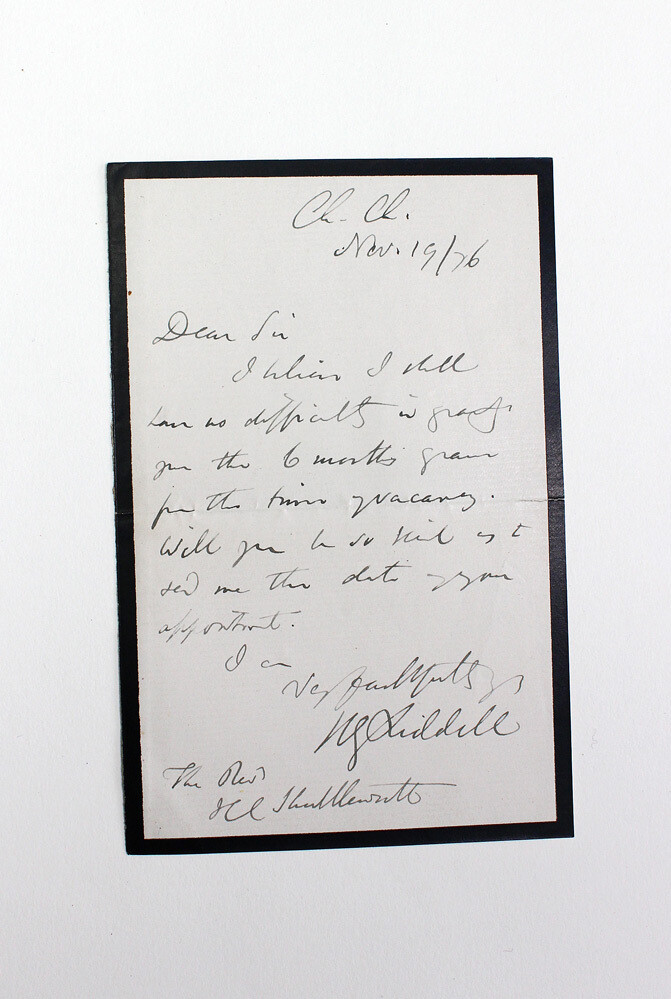 Ch. Ch.
Nov. 19/76
Dear Sir
I believe I shall
have no difficulty in
you the 6 months grace
for the living vacancy.
Will you be so kind as to
send me the date of your
appointment.
I am
Very faithfully yrs
HG Liddell
The Revd
H C Shuttleworth